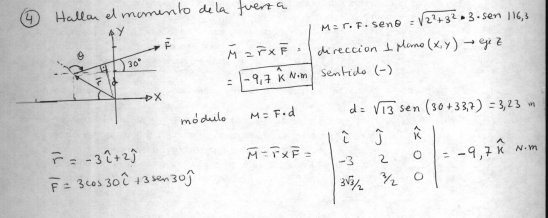 ④ Hallar el momento de la fuerza
Y
F̄
θ
30°
r̄
d
X
M̄ = r̄ x F̄ =
= -9,7 k̂ N·m
M = r · F · senθ = √2²+3² • 3 · sen 116,3
direccion ⊥ plano (x,y) → eje z
sentido (-)
módulo M = F·d
d = √13 sen (30+33,7) = 3,23 m
r̄ = -3î+2ĵ
F̄ = 3cos30î +3sen30ĵ
M̄ = r̄ x F̄ =
î ĵ k̂
-3 2 0
3√3/2 3/2 0
= -9,7 k̂ N·m